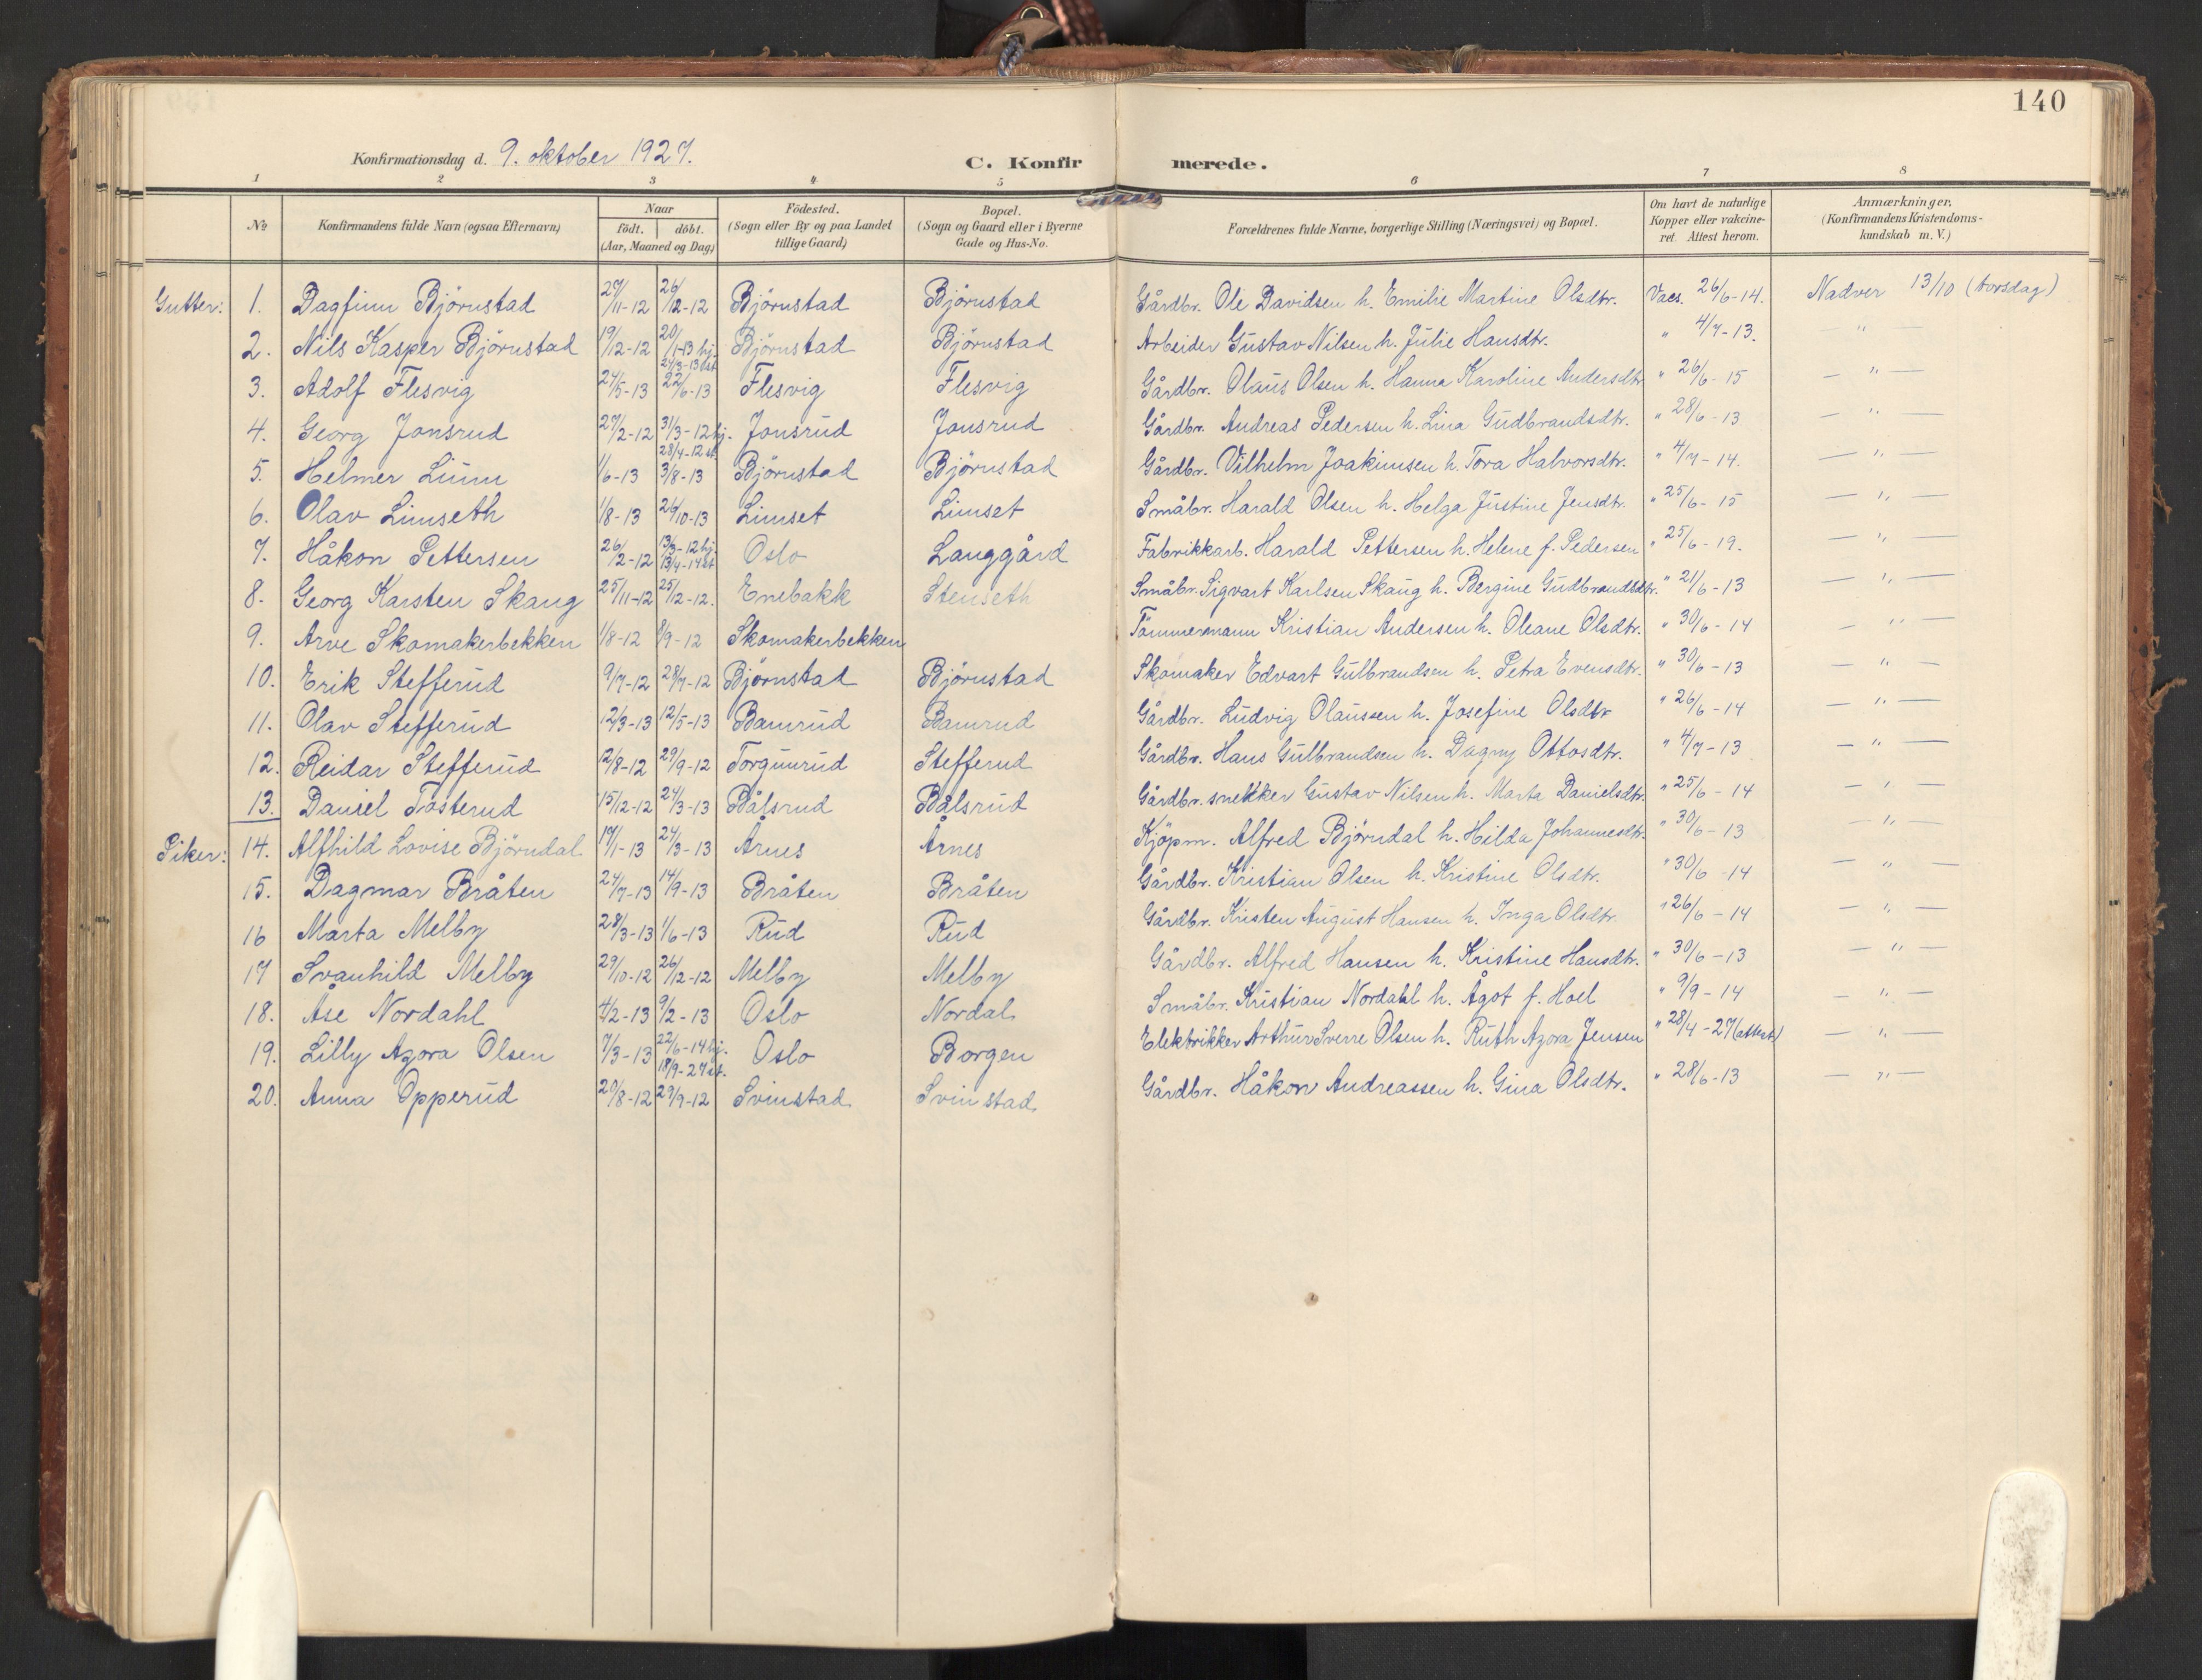 140
Konfirmationsdag d. 9. oktober 1927. C. Konfirmerede.
1 2 3 4 5 6 7 8
No Konfirmandens fulde Navn (ogsaa Efternavn) Naar födt. döbt. (Aar, Maaned og Dag) Födested. (Sogn eller By og paa Landet tillige Gaard) Bopæl. (Sogn og Gaard eller i Byerne Gade og Hus-No. Forældrenes fulde Navne, borgerlige Stilling (Næringsvei) og Bopæl. Om havt de naturlige Kopper eller vakcineret. Attest herom. Anmærkninger. (Konfirmandens Kristendomskundskab m. V.)
Gutter: 1. Dagfinn Björnstad 27/11-12 26/12-12 Björnstad Björnstad Gårdbr. Ole Davidsen h. Emilie Martine Olsdtr. Vacs. 26/6-14. Nadver 13/10 (torsdag)
2. Nils Kasper Björnstad 19/12-12 20/1-13 hj. 24/3-13 st. Björnstad Björnstad Arbeider Gustav Nilsen h. Julie Hansdtr. " 4/7-13. — " —
3. Adolf Flesvig 24/5-13 22/6-13 Flesvig Flesvig Gårdbr. Olaus Olsen h. Hanna Karoline Andersdtr. " 26/6-15 — " —
4. Georg Jonsrud 27/2-12 31/3-12 hj. 28/4-12 st. Jonsrud Jonsrud Gårdbr. Andreas Pedersen h. Lina Gudbrandsdtr. " 28/6-13 — " —
5. Helmer Lunn 1/6-13 3/8-13 Björnstad Björnstad Gårdbr. Vilhelm Joakimsen h. Tora Halvorsdtr. " 4/7-14. — " —
6. Olav Limseth 1/8-13 26/10-13 Limset Limset Småbr. Harald Olsen h. Helga Justine Jensdtr. " 25/6-15 — " —
7. Håkon Pettersen 26/2-12 13/3-12 hj. 13/4-14 st. Oslo Langgård Fabrikkarb. Harald Pettersen h. Helene f. Pedersen " 25/6-19. — " —
8. Georg Karsten Skaug 25/11-12 25/12-12. Enebakk Stenseth Småbr. Sigvart Karlsen Skaug h. Bergine Gudbrandsdtr. " 21/6-13 — " —
9. Arve Skomakerbekken 1/8-12 8/9-12 Skomakerbekken Tömmermann Kristian Andersen h. Oleane Olsdtr. " 30/6-14 — " —
10. Erik Stefferud 9/7-12 28/7-12 Björnstad Björnstad Skomaker Edvart Gulbrandsen h. Petra Evensdtr. " 30/6-13 — " —
11. Olav Stefferud 12/3-13 12/5-13 Bamrud Bamrud Gårdbr. Ludvig Olaussen h. Josefine Olsdtr " 26/6-14 — " —
12. Reidar Stefferud 12/8-12 29/9-12 Torgunrud Stefferud Gårdbr. Hans Gulbrandsen h. Dagny Ottosdtr. " 4/7-13 — " —
13. Daniel Tosterud 15/12-12 24/3-13 Bålsrud Bålsrud Gårdbr. snekker Gustav Nilsen h. Marta Danielsdtr. " 25/6-14 — " —
Piker: 14. Alfhild Lovise Björndal 19/1-13 24/3-13 Årnes Årnes Kjöpm. Alfred Björndal h. Hilda Johannesdtr. " 30/6-13 — " —
15. Dagmar Bråten 24/7-13 14/9-13 Bråten Bråten Gårdbr. Kristian Olsen h. Kristine Olsdtr. " 30/6-14 — " —
16 Marta Melby 28/3-13 1/6-13 Rud Rud Gårdbr. Kristen August Hansen h. Inga Olsdtr. " 26/6-14 — " —
17 Svanhild Melby 29/10-12 26/12-12 Melby Melby Gårdbr. Alfred Hansen h. Kristine Hansdtr. " 30/6-13 — " —
18. Åse Nordahl 4/2-13 9/2-13 Oslo Nordal Småbr. Kristian Nordahl h. Ågot f. Hoel " 9/9-14 — " —
19. Lilly Agora Olsen 7/3-13 22/6-14 hj. 18/9-27 st. Oslo Borgen Elektrikker Arthur Sverre Olsen h. Ruth Agora Jensen " 28/4-27 (attest) — " —
20. Anna Opperud 20/8-12 29/9-12 Svinstad Svinstad Gårdbr. Håkon Andreassen h. Gina Olsdtr. " 28/6-13 — " —